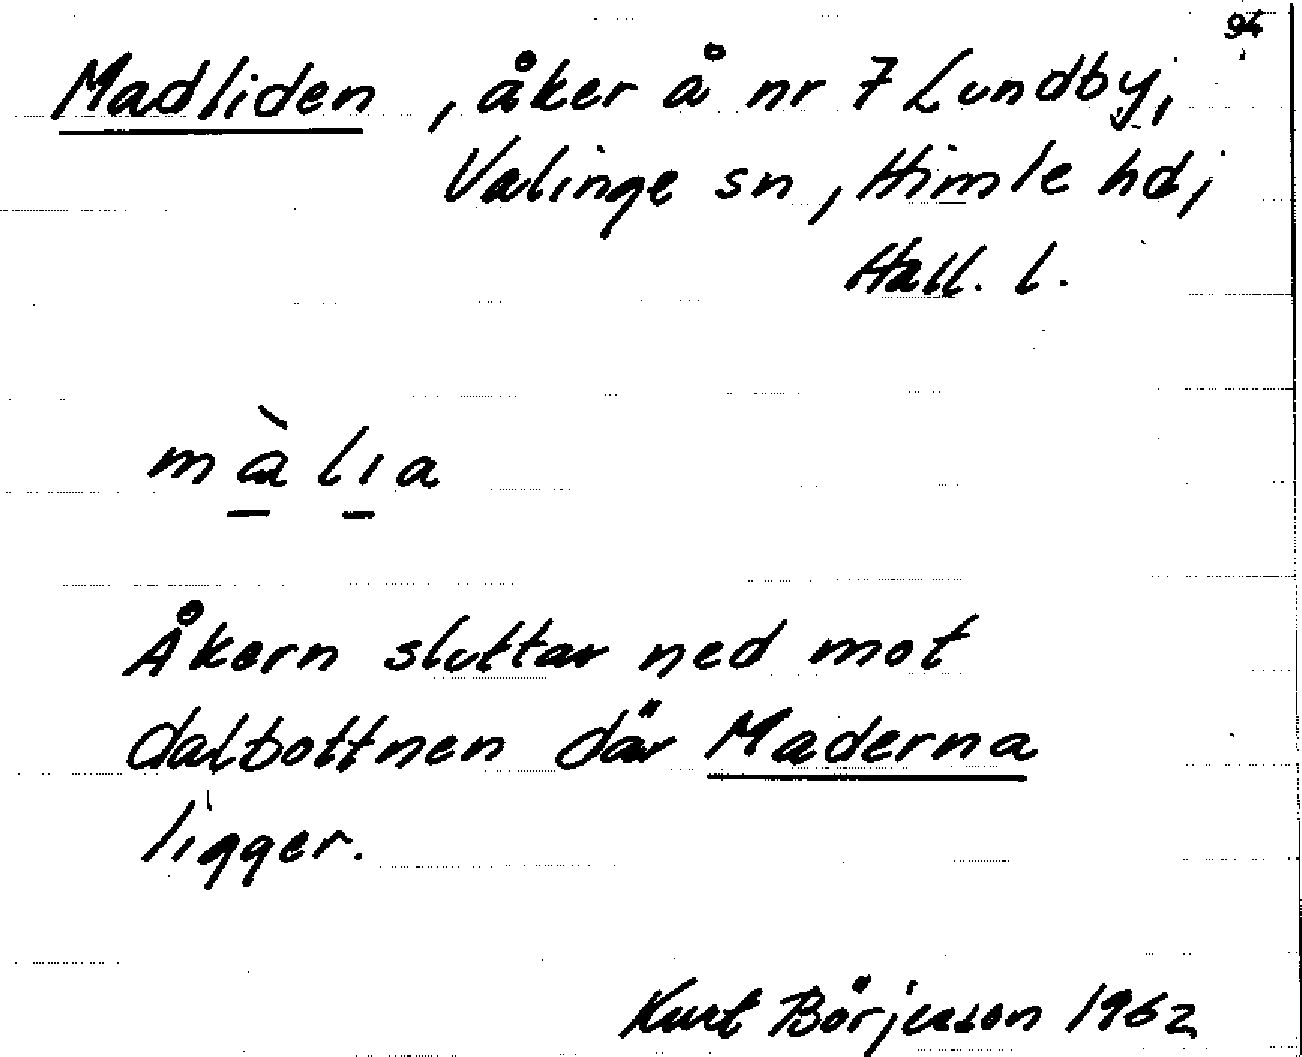 94
Madliden, åker å nr 7 Lundby,
Valinge sn, Himle hd,
Hall. l.
màlıa
Åkern sluttar ned mot
dalbottnen där Maderna
ligger.
Kurt Börjesson 1962